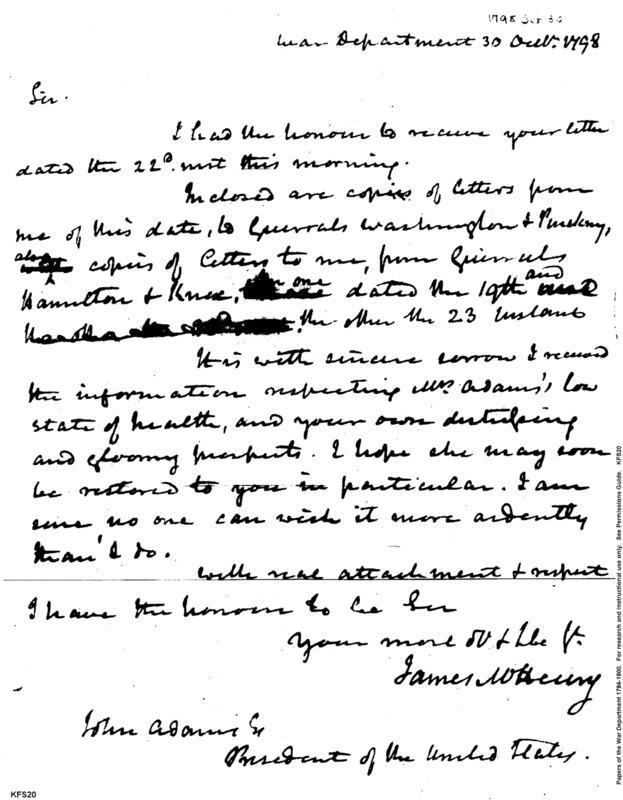 1798 Oct 30
War Department 30 Octr. 1798
Sir.
I had the honour to receive your letter
dated the 22d. inst this morning.
Inclosed are copies of letters from
me of this date, to Generals Washington & Pinckney,
also
copies of letters to me, from Generals
Hamilton & Knox, one dated the 19th and
the other the 23 Instant
It is with sincere sorrow I received
the information respecting Mrs. Adams's low
state of health, and your own distressing
and gloomy prospects. I hope she may soon
be restored to you in particular. I am
sure no one can wish it more ardently
than I do.
with real attachment & respect
I have the honour to be Sir
Your most ob & hble St.
James McHenry
John Adams Es
President of the United States.
KFS20
Papers of the War Department 1784-1800. For research and instructional use only. See Permissions Guide. KFS20